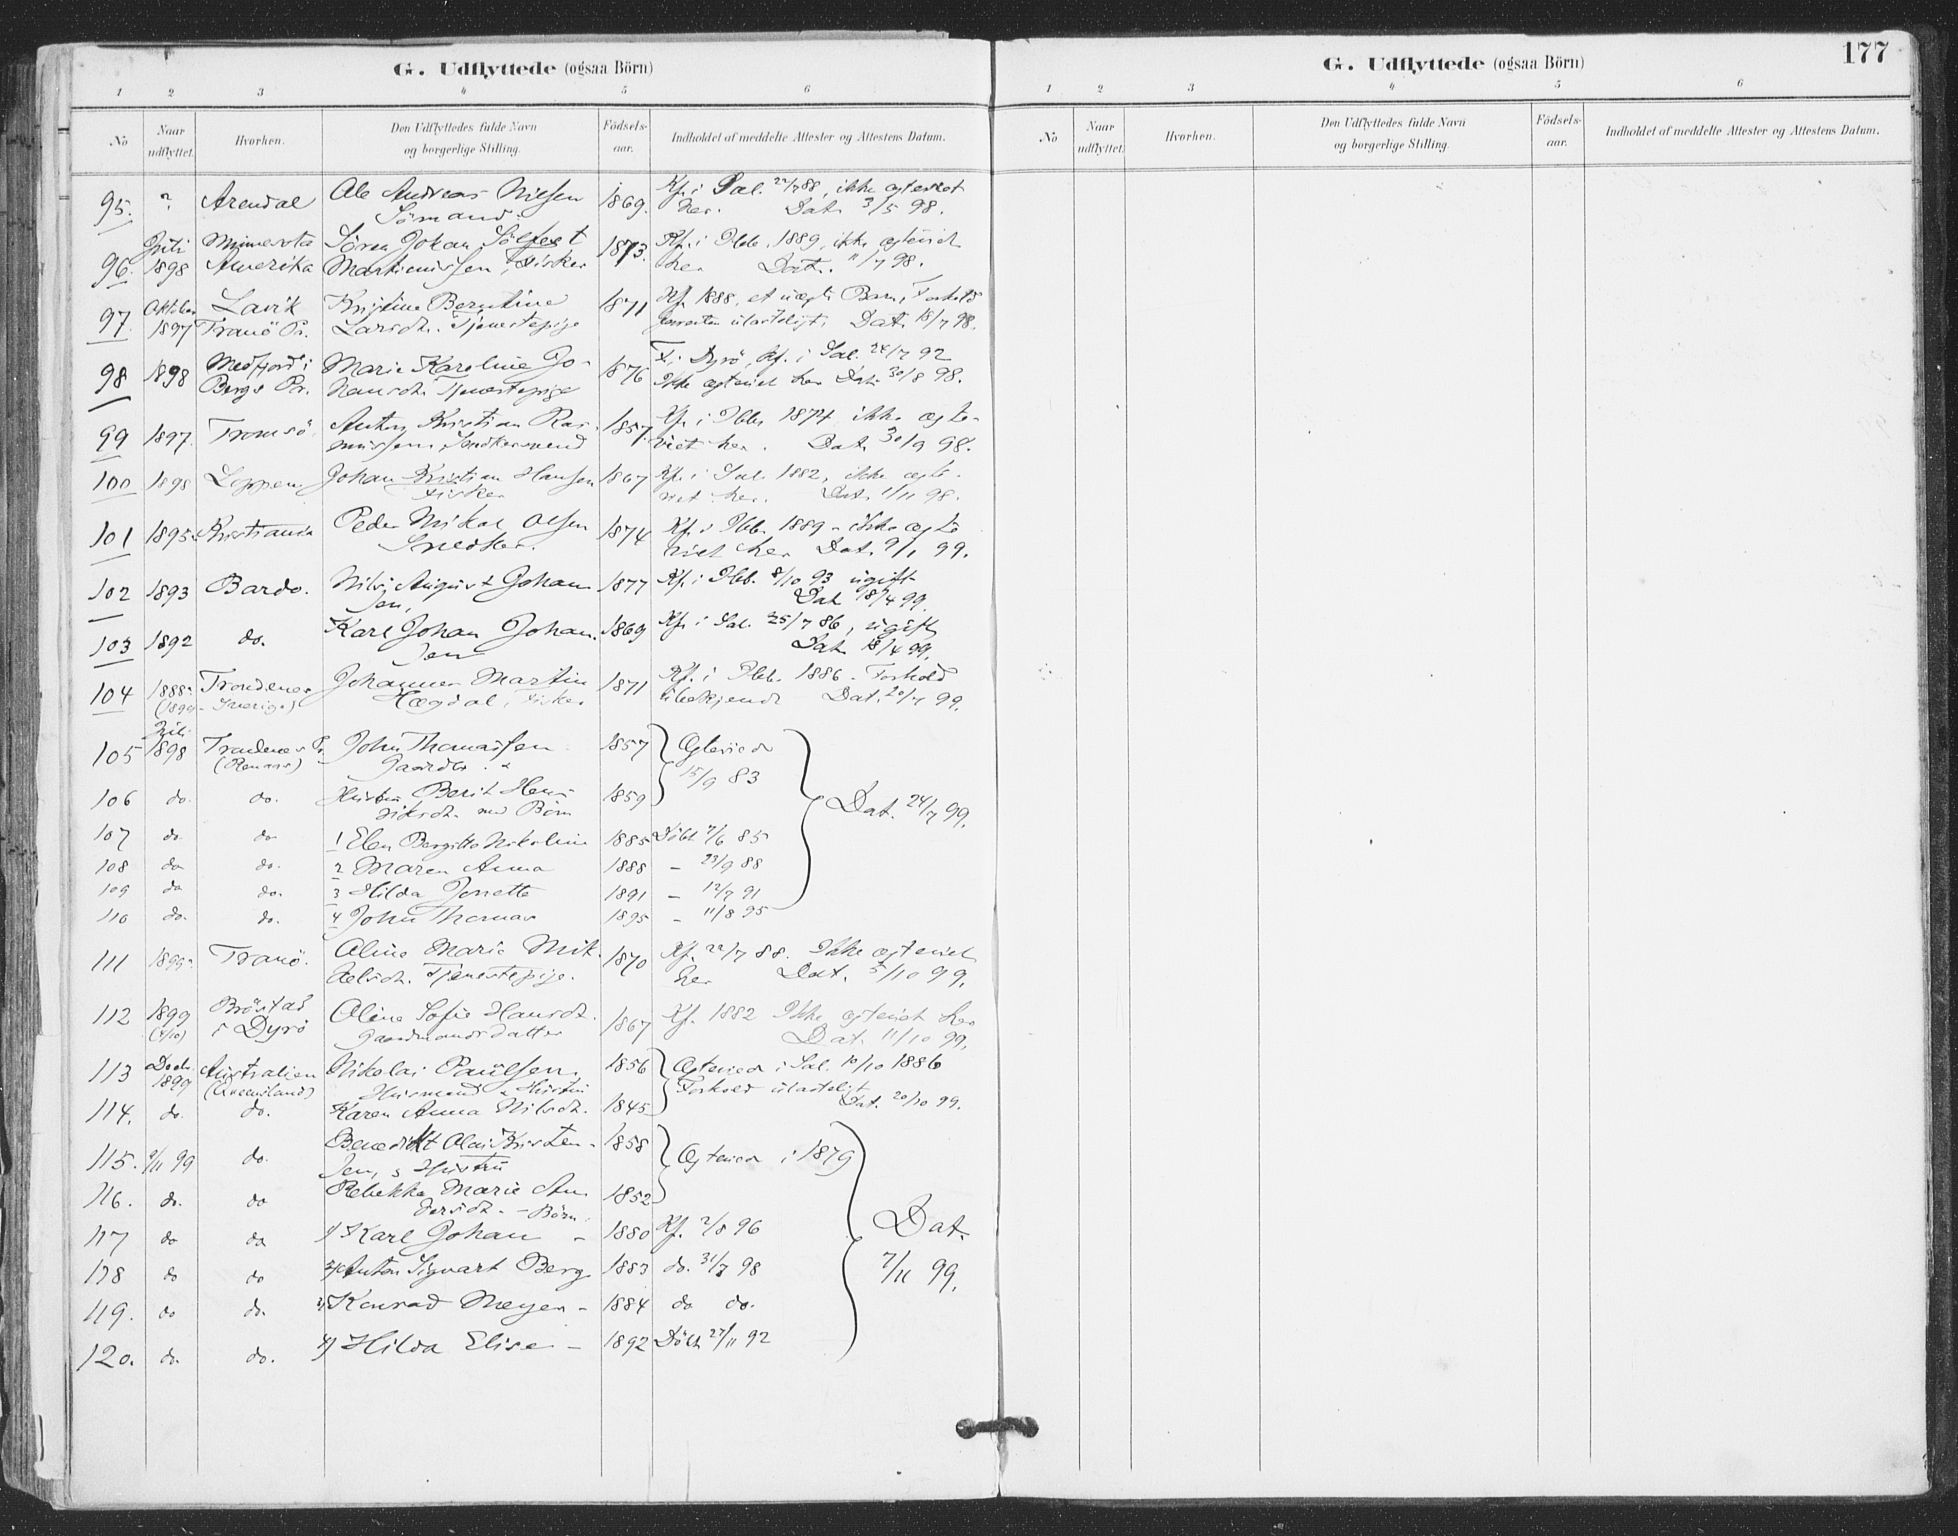 G. Udflyttede (ogsaa Börn)
1 2 3 4 5 6
No
Naar udflyttet.
Hvorhen.
Den Udflyttedes fulde Navn og borgerlige Stilling.
Födsels-aar.
Indholdet af meddelte Attester og Attestens Datum.
95. ? Arendal Ole Andreas Nilsen 1869. Kf. i Sal. 22/7 88, ikke ægteviet
Sömand. her. Dat. 3/5 98.
Juli Minnesota Sören Johan 1873. Kf. i Ibb. 1889, ikke ægteviet
96. 1898 Amerika Martinussen, Fisker her Dat. 11/7 98.
Oktober Lavik Kristine Berntine 1871 Kf. 1888, et uægte Barn, Forhold
97. 1897 Tranö Pr. Larsdt. Tjenestepige forresten ulasteligt. Dat. 18/7 98.
98 1898 Medfjord i Marie Karoline Jo- 1876 F. i Dyrö, Kf. i Sal. 24/7 92
Bergs Pr. hansdt. Tjenestepige Ikke ægteviet her Dat. 30/8 98.
99 1897. Tromsö. Anton Kristian Ras- 1857. Kf. i Ibb. 1874 ikke ægte-
mussen, Snedkersvend viet her. Dat. 30/9 98.
100 1898 Loppen. Johan Kristian Hansen 1867 Kf. i Sal. 1882, ikke ægte-
Fisker viet her. Dat. 1/11 98.
101 1895. Kristiania Peder Mikal Olsen 1874 Kf. i Ibb. 1889 - ikke ægte
Snedker. viet her Dat. 9/1 99.
102 1893 Bardo. Nils August Johan- 1877 Kf. i Ibb. 8/10 93 ugift
sen, Dat 18/4 99.
103 1892 do. Karl Johan Johan- 1869 Kf. i Sal. 25/7 86, ugift
sen Dat. 18/4 99.
104 1888. Trondenes Johannes Martin 1871 Kf. i Ibb. 1886 - Forhold
(1899 - Sverige) Hægdal, Fisker ubekjendt Dat. 20/4 99.
Juli
105 1898 Trondenes Pr. John Thomassen 1857 Ægteviede
Gaardbr. 15/9 83
106 do. do. Hustru Berit Hen- 1859 Dat. 24/7 99.
riksdt. med Börn
107 do do 1 Elen Bergitte Nikoline 1885 Döbt 7/6 85
108 do do. 2 Maren Anna 1888 - 23/9 88
109 do do. 3 Hilda Jenette 1891 - 12/7 91
110 do. do. 4 John Thomas 1895 - 11/8 95
111 1899. Tranö. Aline Marie Mik- 1870 Kf. 22/7 88. Ikke ægteviet
kelsdt. Tjenestepige. her Dat. 5/10 99.
112 1899 Bröstad Oline Sofie Hansdt. 1867 Kf. 1882 Ikke ægteviet her
i Dyrö Gaardmandsdatter Dat. 11/10 99.
113 Decbr. 1899 Australien Nikolai Paulsen. 1856 Ægteviede i Sal. 10/10 1886
(Queensland) Husmand Hustru Forhold ulasteligt
114. do. do. Karen Anna Nilsdt. 1845 Dat. 20/10 99.
115. 9/11 99 do. Benedikt Olai Kristen- 1858 Ægteviede i 1879
sen, s Hustru
116. do. do Rebekka Marie An- 1852
dersdt. - Börn.
117 do do 1) Karl Johan - 1880 Kf. 2/8 96 Dat.
118 do do 2) Anton Sigvart Berg 1883 do. 31/7 98 7/11 99.
119. do do. 3) Konrad Meyer - 1884 do do.
120. do. do. 4) Hilda Elise - 1892 Döbt 27/11 92
G. Udflyttede (ogsaa Börn)
177
1 2 3 4 5 6
No
Naar udflyttet.
Hvorhen.
Den Udflyttedes fulde Navn og borgerlige Stilling.
Födsels-aar.
Indholdet af meddelte Attester og Attestens Datum.